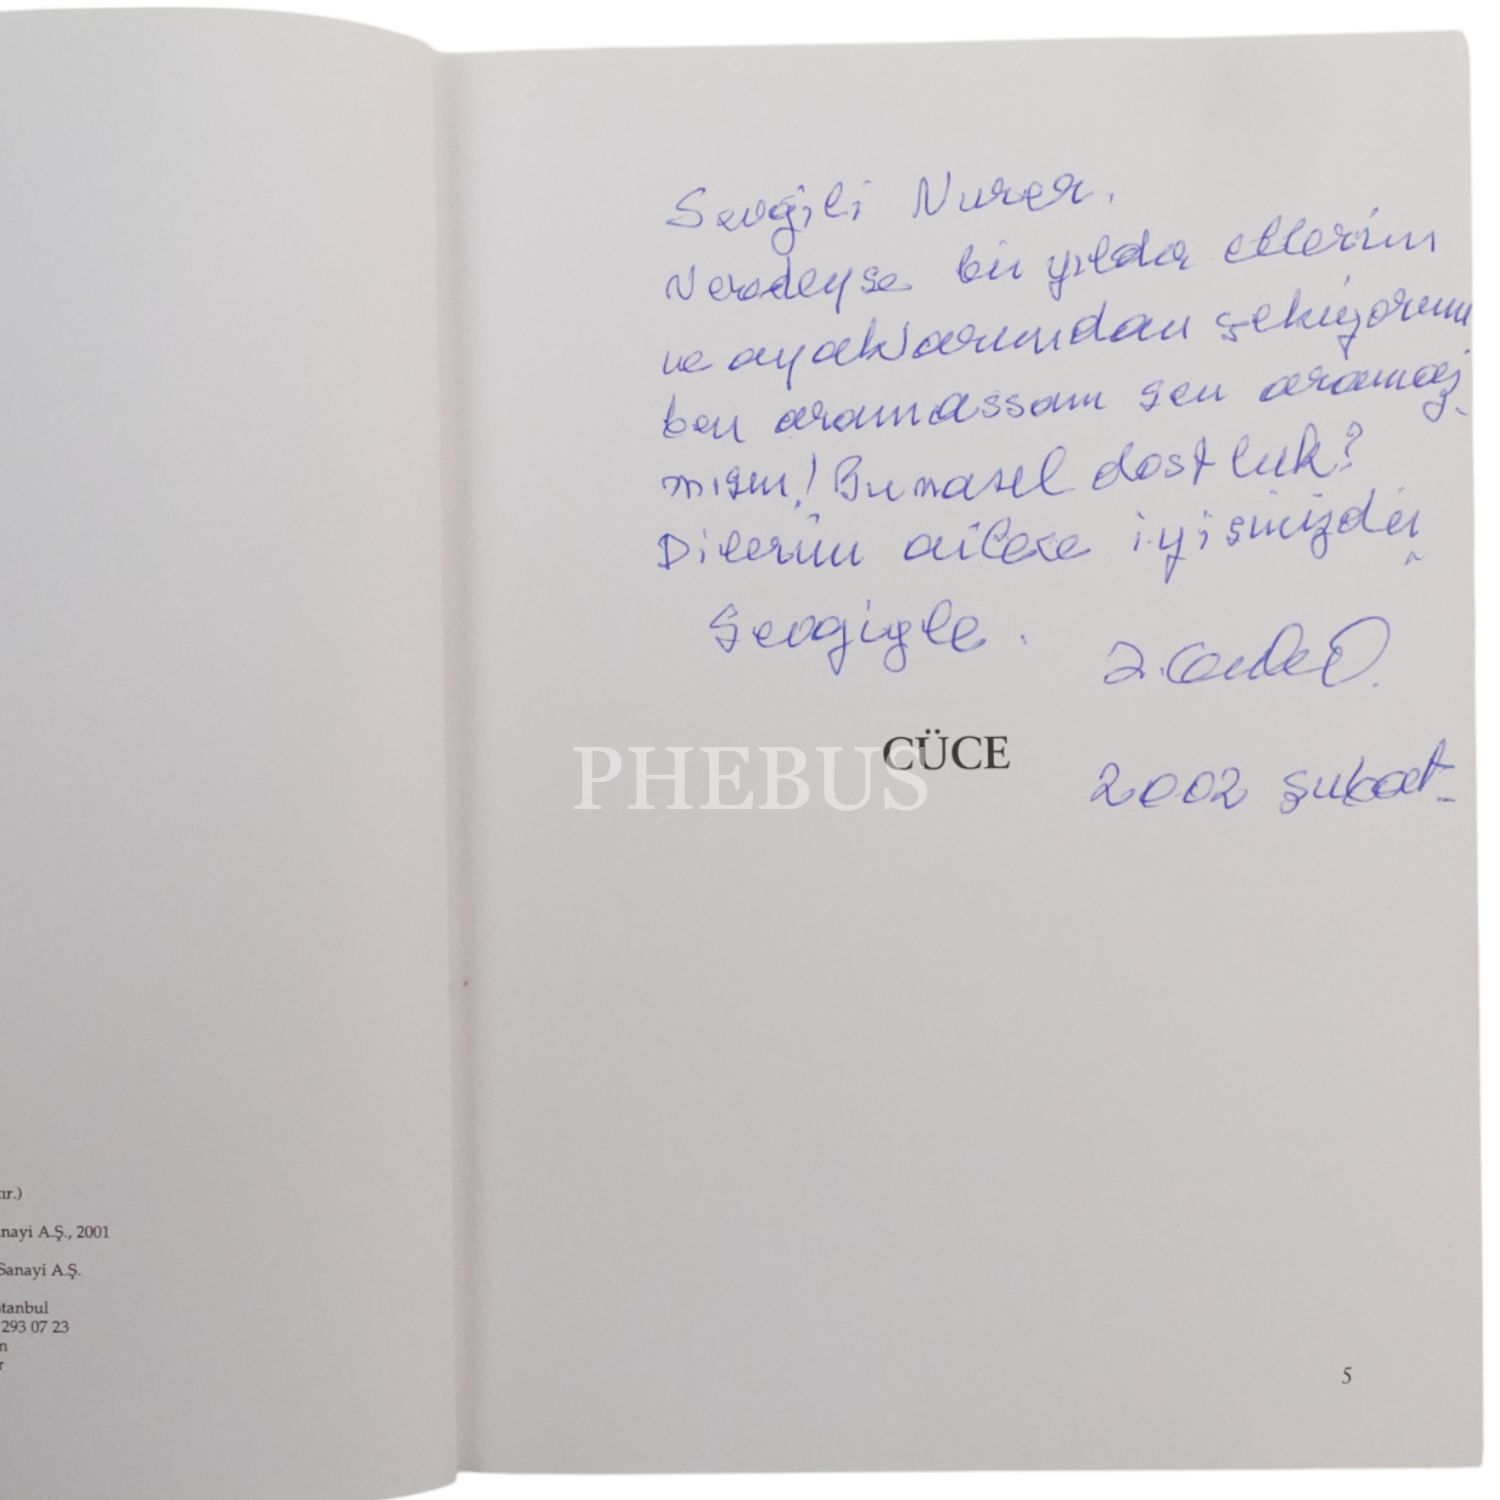 Sevgili Nurer,
Nerdeyse bir yılda ellerim
ve ayaklarımdan çekiyorum
ben aramassam sen aramaz
mısın! Bu nasıl dostluk?
Dilerim ailece iyisinizdir
Sevgiyle.
PHEBUS
CÜCE
2002 Şubat
ır.)
nayi A.Ş., 2001
Sanayi A.Ş.
stanbul
293 07 23
n
r
5